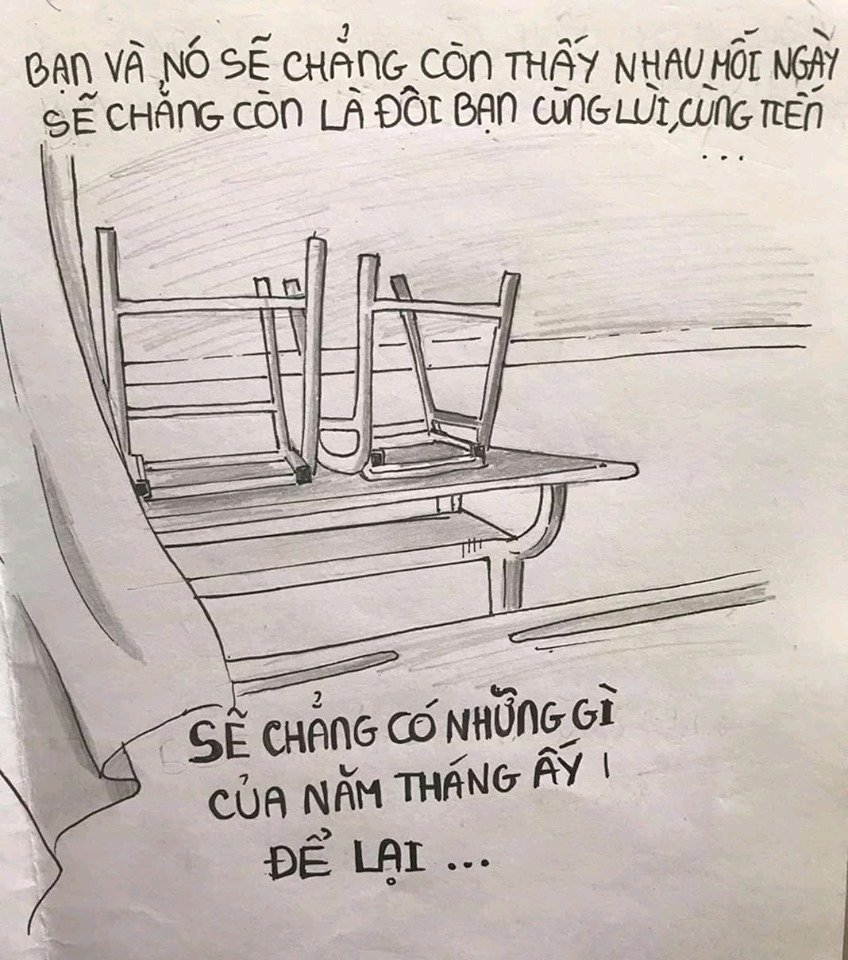 BẠN VÀ NÓ SẼ CHẲNG CÒN THẤY NHAU MỖI NGÀY
SẼ CHẲNG CÒN LÀ ĐÔI BẠN CÙNG LÙI, CÙNG TIẾN
...
SẼ CHẲNG CÓ NHỮNG GÌ
CỦA NĂM THÁNG ẤY !
ĐỂ LẠI ...